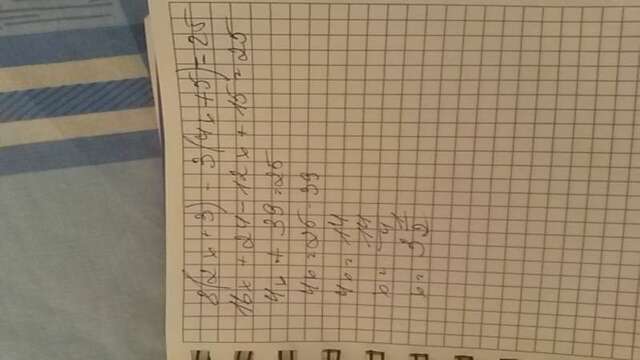 8(2x+3) - 3(4x+5) = 25
16x + 24 - 12x + 15 = 25
4x + 39 = 25
4x = 25 - 39
4x = 14
x = 14/4
x = 3 1/2